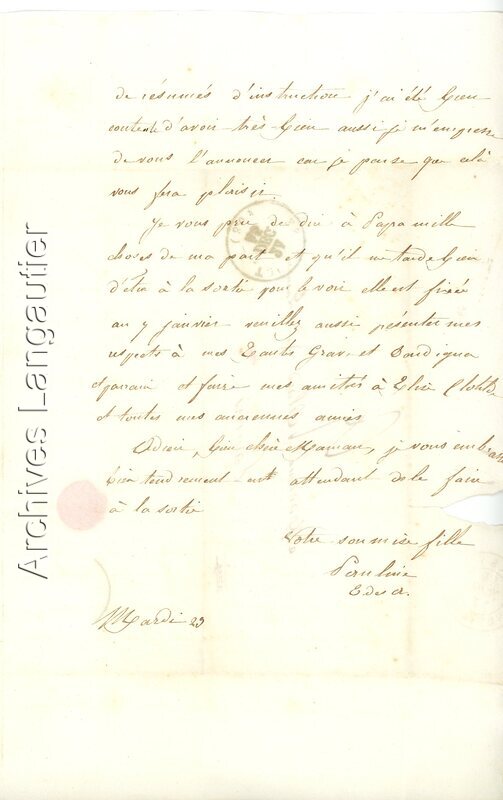 de résumés d'instruction j'ai été bien
contente d'avoir très-bien aussi je m'empresse
de vous l'annoncer car je pense que celà
vous fera plaisir.
Je vous prie de dire à Papa mille
choses de ma part et qu'il me tarde bien
d'être à la sortie pour le voir elle est fixée
au 7 janvier veuillez aussi présenter mes
respects à mes Tantes Grave et
et faire mes amitiés à Elisa Clotilde
et toutes mes anciennes amies
Adieu, bien chère Maman, je vous embrasse
bien tendrement en attendant de le faire
à la sortie
Votre soumise fille
Pauline
E. des A.
Mardi 23
Archives Langautier